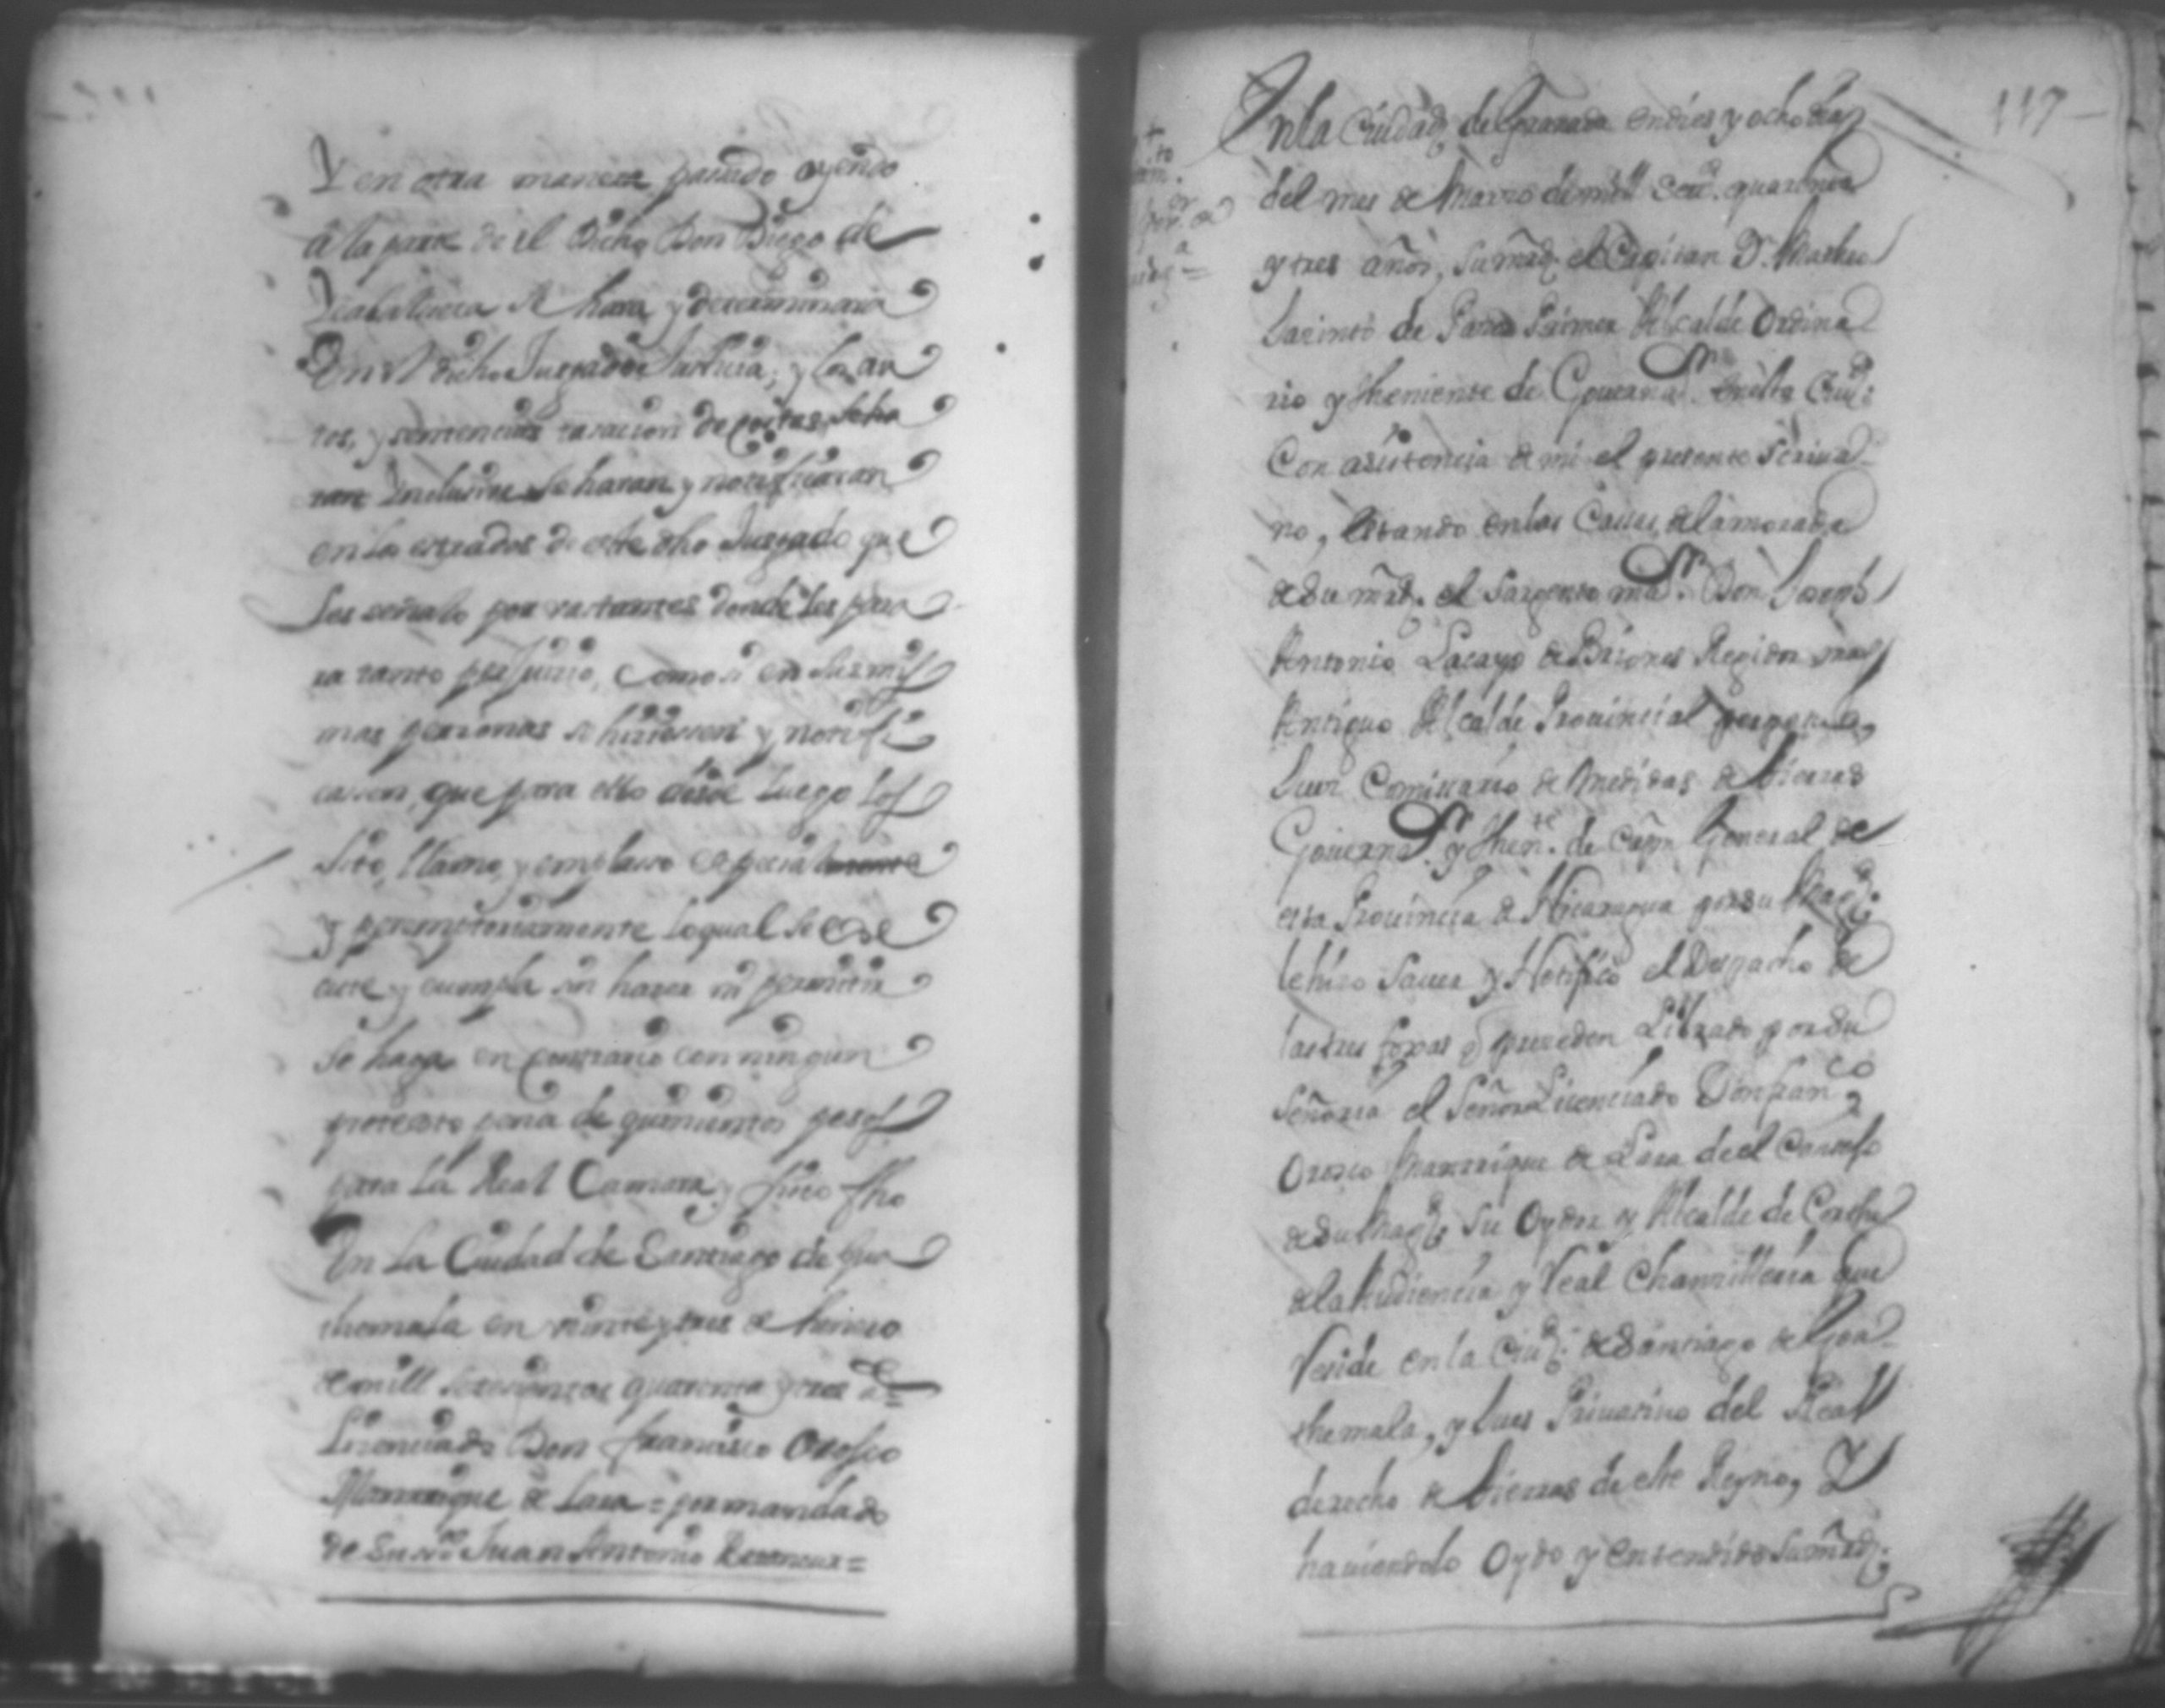 Y en otra manera pasado oyendo
â la parte de el Dicho Don Diego de
se hara y determinara
En el dicho Juzgado Justicia, y los au
tos, y sentencias tasacion de costas se ha
ran Inclusive se haran y notificaran
en los estrados de este dho Juzgado que
les señalo por bastantes donde les para
ra tanto perjuicio, como si en sus mis
mas personas se hiciessen y notifi
cassen, que para ello desde luego los
Sito, llamo, y emplazo especialmente
y peremptoriamente loqual se exe
cute y cumpla sin hazer ni permitir
Se haga en contrario con ningun
pretexto pena de quinientos pesos
para La Real Camara, fho
En La Ciudad de Santiago de Gua
themala en veinte y tres de henero
de mill setesientos quarenta y tres a.s=
Lizenciado Don francisco Orosco
Manrrique de Lara = por mandado
de Su md Juan Antonio =
117
En la Ciudad de Granada en dies y ocho dias
del mes de Marzo de mill setz. quarenta
y tres años, su mrd. el Capitan Dn. Matheo
Jacinto de Primer Alcalde Ordina
rio y Theniente de Governador. de esta Ciud.
Con asistencia de mi el presente Scriva
no, estando en las Casas de la morada
de su mrd. el Sargento mar. Don Joseph
Antonio Lacayo de Briones Regidor mas
Antiguo Alcalde Provincial
Juez Comissario de Medidas de tierras
Governar. y Thene. de Capn. General de
esta Provincia de Nicaragua por su Magd.
le hizo Saver y Notifico el Despacho de
las tres foxas q preceden Librado por su
Señoria el Señor Licenciado Don franco
Orosco Manrrique de Lara de el Consejo
de su Magd. Su Oydor y Alcalde de Corte
de la Audiencia y Real Chansilleria que
Reside en la Ciud. de Santiago de Goa
themala, y Jues Privativo del Real
derecho de tierras de este Reyno, Y
haviendolo Oydo y entendido su mrd.